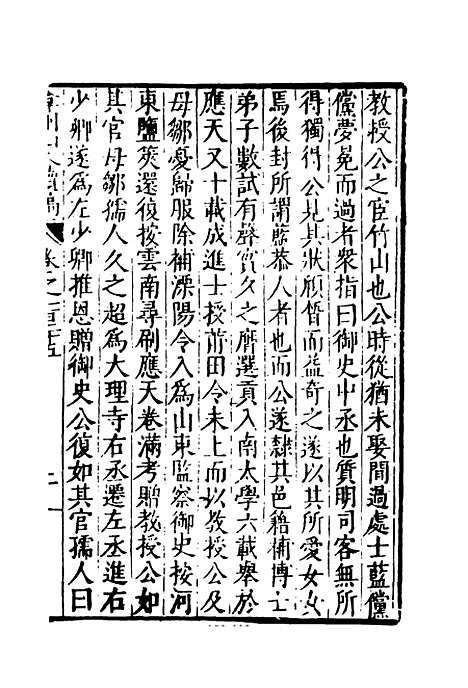 教授公之官竹山也公時從猶未娶間過處士藍黨
黨夢冕而過者衆指曰御史中丞也質明司客無所
得獨得公見其狀頎晳而益奇之遂以其所愛女女
焉後封所謂藍恭人者也而公遂隸其邑籍補博士
弟子數試有聲實久之膺選貢入南太學六載舉於
應天又十載成進士授莆田令未上而以教授公及
母鄒憂歸服除補溧陽令入爲山東監察御史按河
東鹽筴還復按雲南尋刷應天卷滿考贈教授公如
其官母鄒孺人久之超爲大理寺右丞遷左丞進右
少卿遂爲左少卿推恩贈御史公復如其官孺人曰
卷之一百十五
二